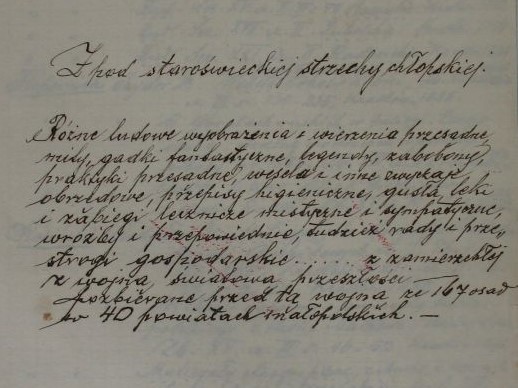 Z pod staroświeckiej strzechy chłopskiej.
Różne ludowe wyobrażenia i wierzenia przesądne,
mity, gadki fantastyczne, legendy, zabobony,
praktyki przesądne, wesela i inne zwyczaje
obrzędowe, przepisy higieniczne, gusła, leki
i zabiegi lecznicze mistyczne i sympatyczne,
wróżby i przepowiednie, tudzież rady i prze„
strogi gospodarskie...... z zamierzchłej
z wojną światową przeszłości —
pozbierane przed tą wojną ze 167 osad
po 40 powiatach małopolskich. —